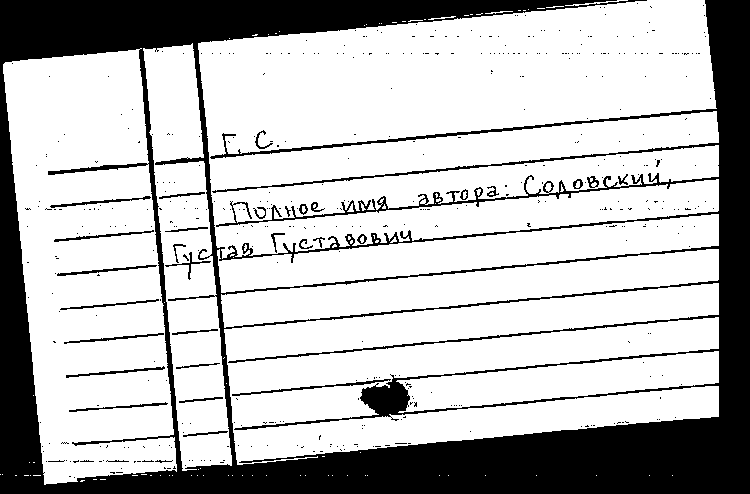 Г. С.
Полное имя автора: Содовский,
Густав Густавович.